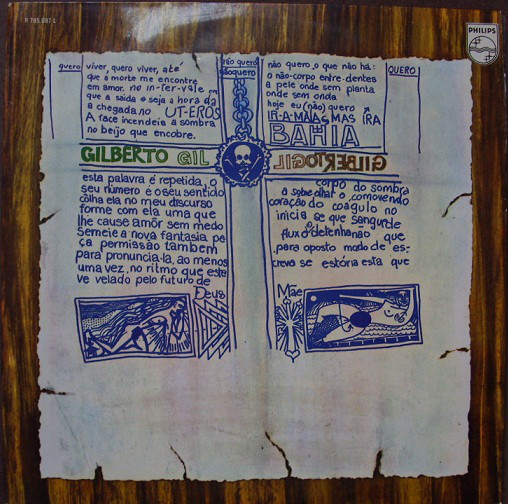 R 765.087 L
PHILIPS
quero
viver, quero viver, até
que a morte me encontre
em amor. no in-ter-vale em
que a saída seja a hora da
a chegada no UT-EROS
A face incendeia a sombra
no beijo que encobre.
não quero
não quero
não quero, o que não há:
o não-corpo entre-dentes
a pele onde sem planta
onde sem onda
hoje eu (não) quero
IR-A-MAIAS MAS IRA
BAHIA
QUERO
GILBERTO GIL
GILBERTO GIL
esta palavra é repetida, o
seu número é o seu sentido
colha ela no meu discurso
forme com ela uma que
lhe cause amor sem medo
Semeie a nova fantasia pe
ça permissão também
para pronuncia-la, ao menos
uma vez, no ritmo que este
ve velado pelo futuro de
Deus
corpo do sombra
a sobre olhar o comovendo
coração do coagulo no
inicia se que sangurde
fluxo detenhanão que
para oposto modo de es-
creva se estória esta que
Mãe